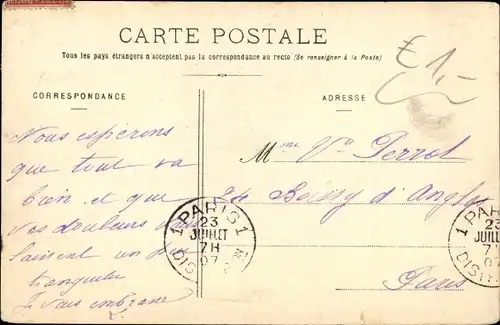 CARTE POSTALE
Tous les pays étrangers n'acceptent pas la correspondance au recto (Se renseigner à la Poste)
€1,-
CORRESPONDANCE
ADRESSE
Nous espérons
que tout va
bien et que
vos douleurs vous
laissent un peu
tranquille
Je vous embrasse
L.
Mme Vve Perrot
24 Boissy d'Anglas
Paris
1 PARIS 1
23
JUILLET
7H
07
DIST
1 PAR
23
JUILL
7
07
DIST